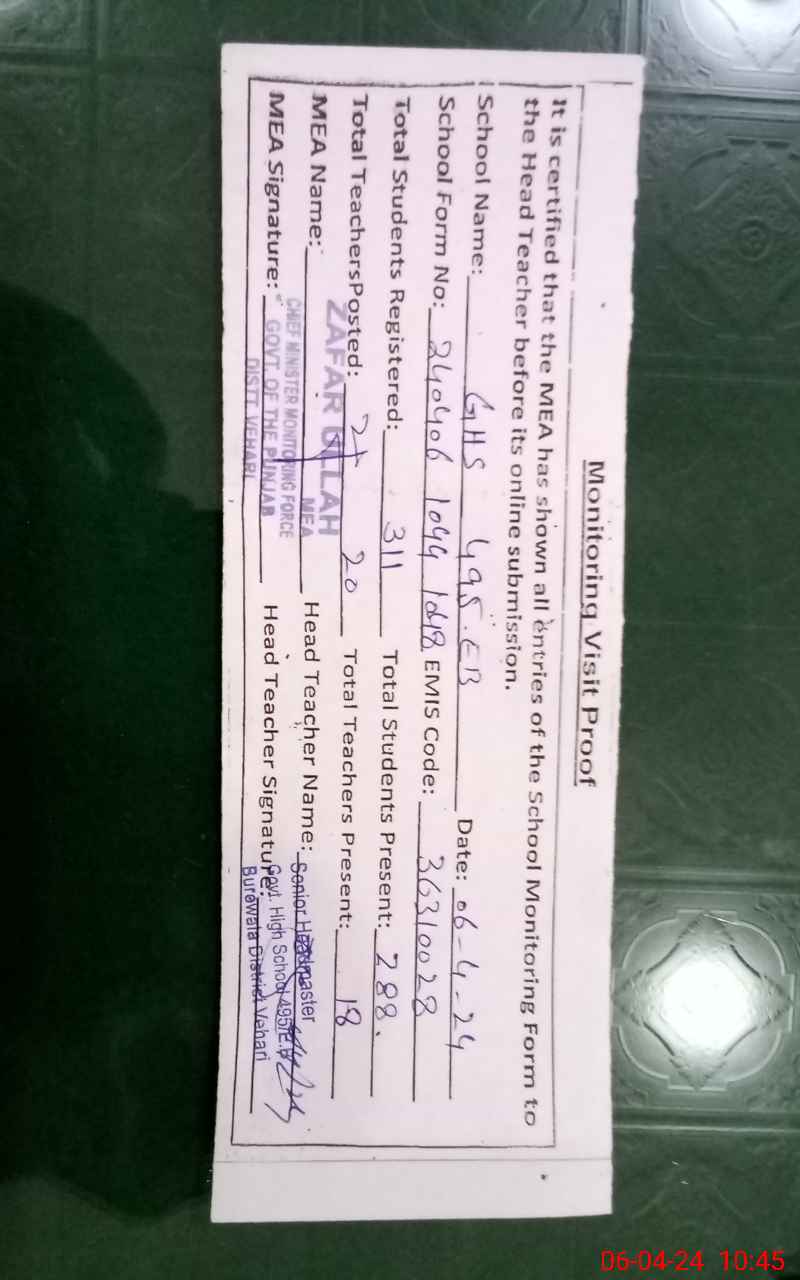 Monitoring Visit Proof
It is certified that the MEA has shown all entries of the School Monitoring Form to
the Head Teacher before its online submission.
School Name: GHS 495.EB Date: 06-4-24
School Form No: 240406 1044 1048 EMIS Code: 36310028
Total Students Registered: 311 Total Students Present: 288.
Total TeachersPosted: 20 Total Teachers Present: 18
MEA Name: ZAFAR ULLAH Head Teacher Name:
MEA
CHIEF MINISTER MONITORING FORCE
MEA Signature: GOVT. OF THE PUNJAB Head Teacher Signature:
DISTT. VEHARI
Senior Headmaster
Govt. High School 495/E.B
Burewala District Vehari
06-04-24 10:45